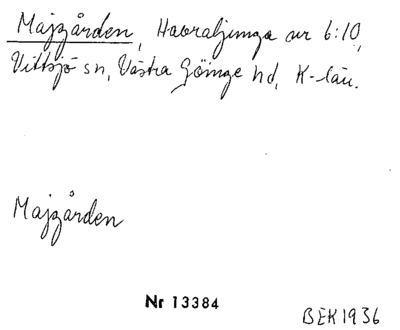 Majgården, Havraljunga nr 6:10,
Vittsjö sn, Västra Göinge hd, K-län.
Majgården
Nr 13384
BEK1936